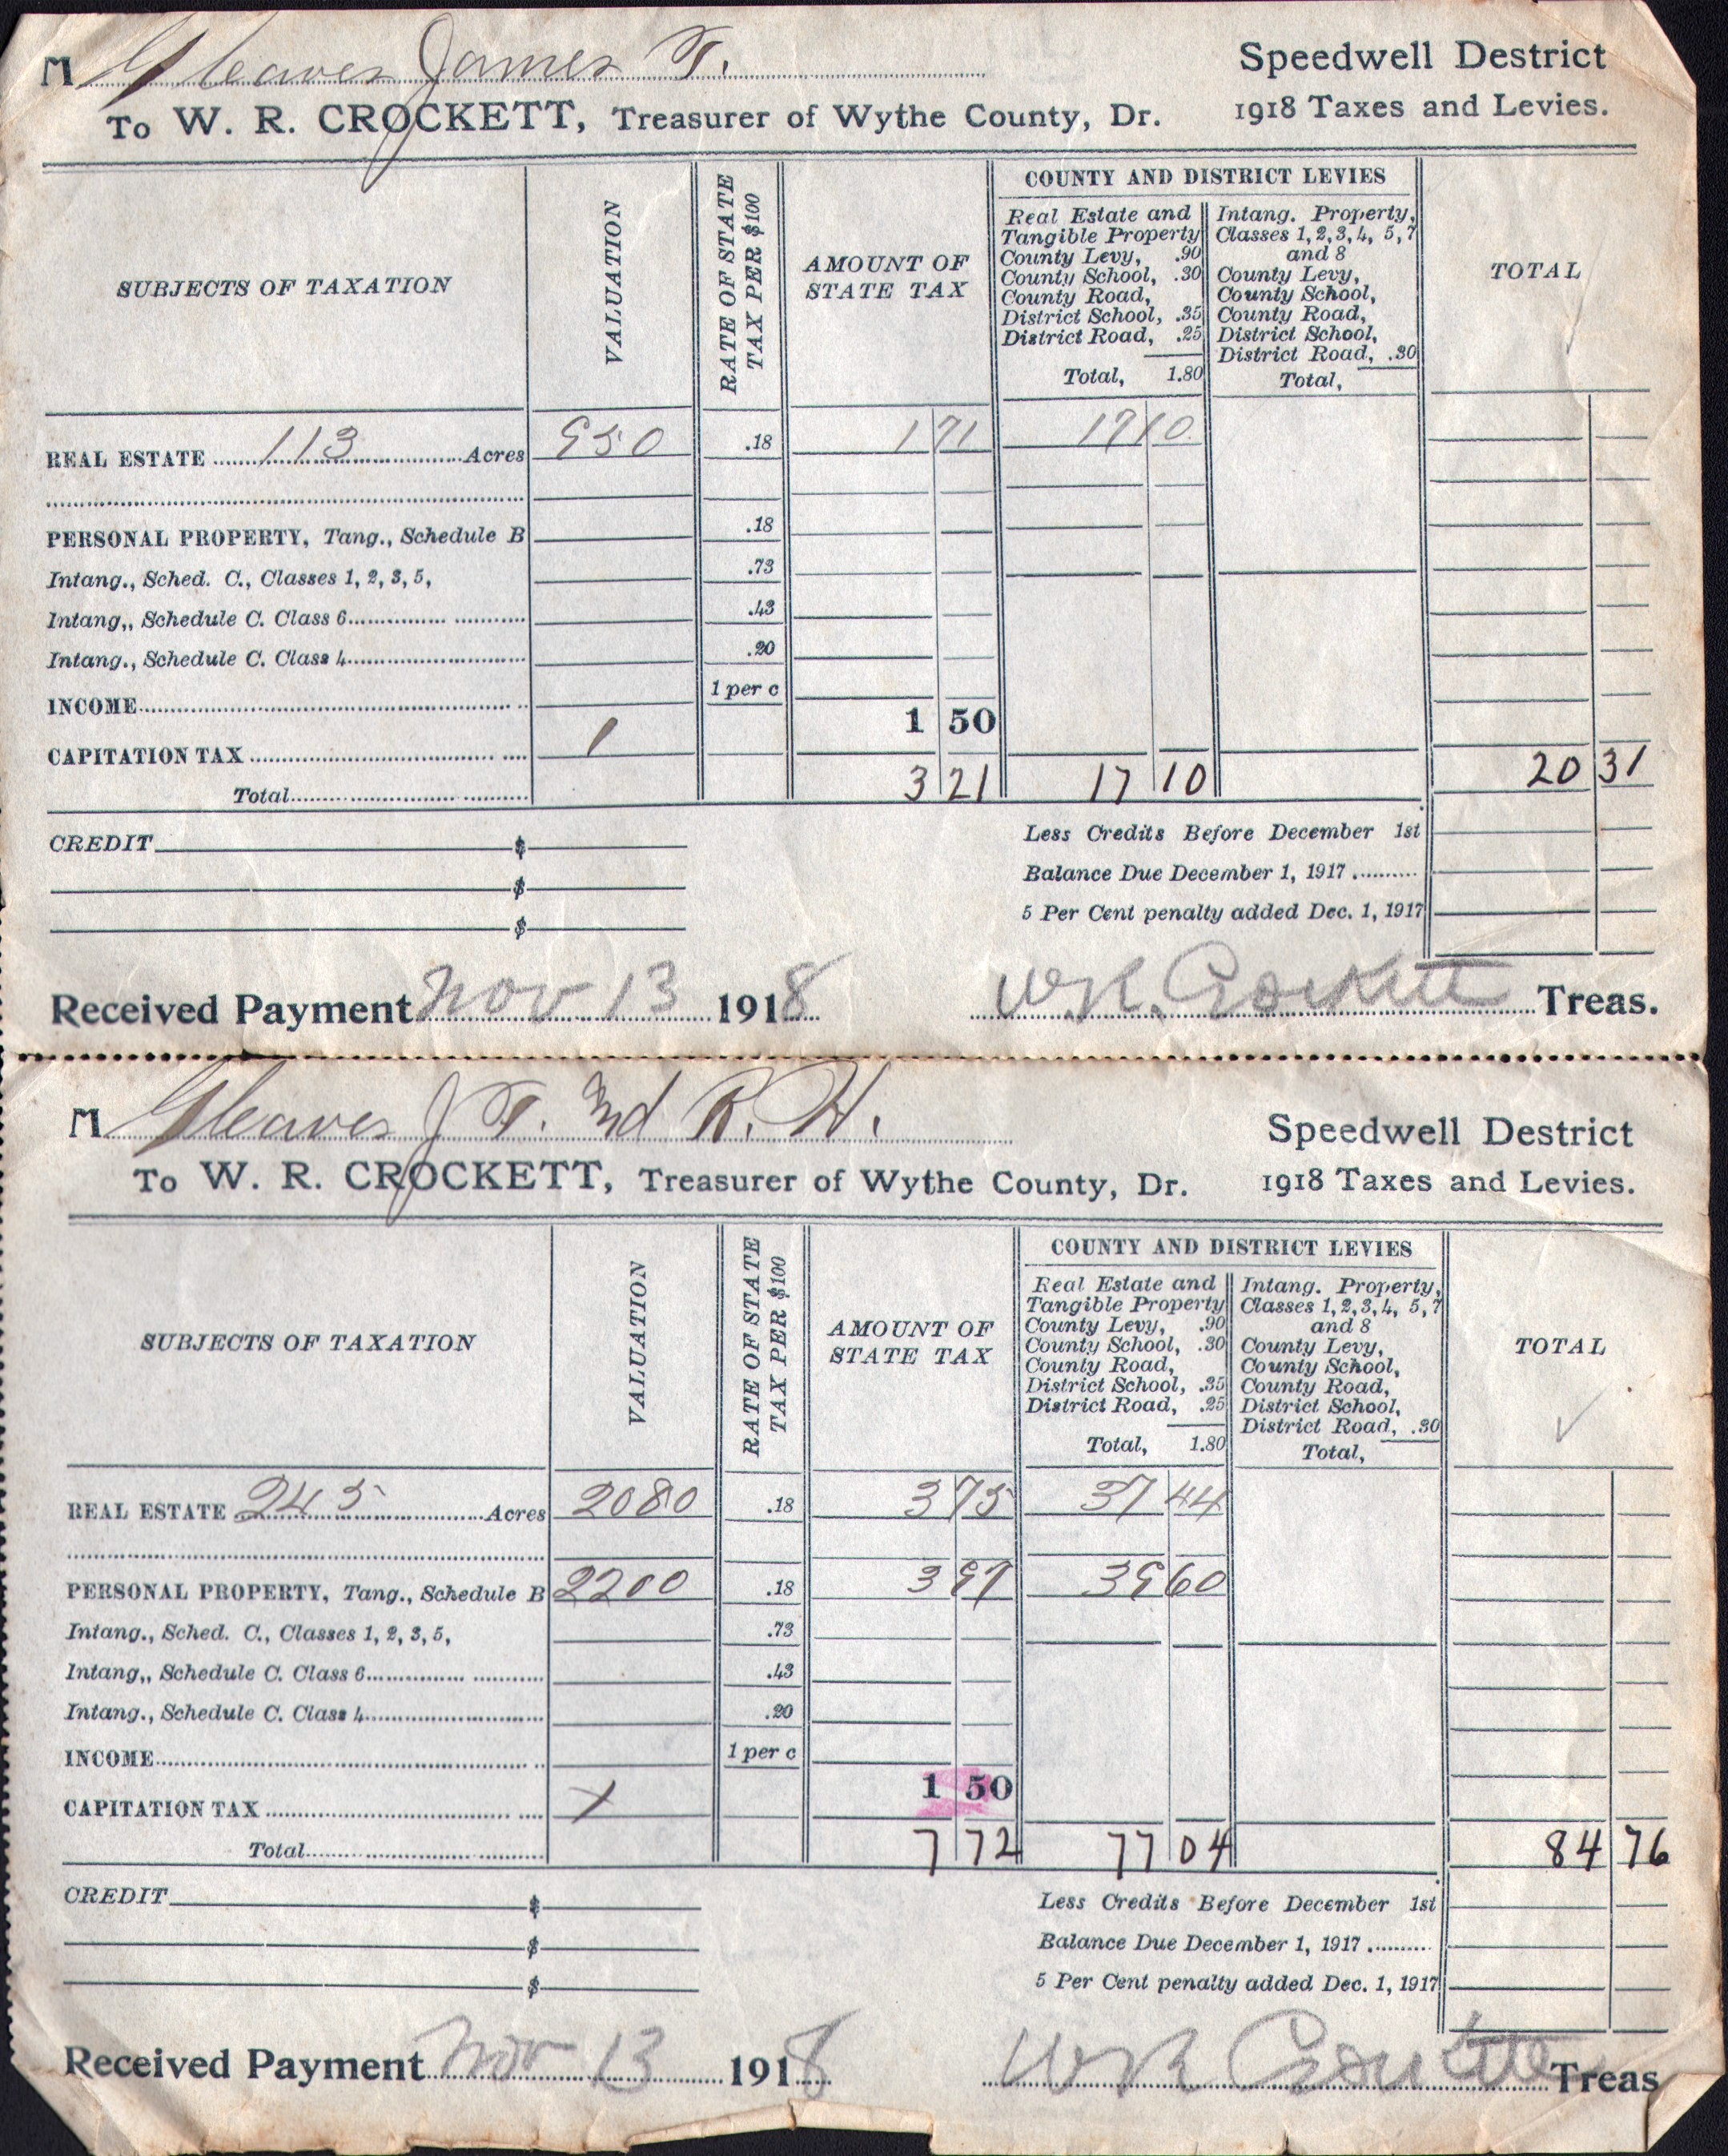 M Gleaves James T. Speedwell Destrict
To W. R. CROCKETT, Treasurer of Wythe County, Dr. 1918 Taxes and Levies.
SUBJECTS OF TAXATION
VALUATION
RATE OF STATE TAX PER $100
AMOUNT OF STATE TAX
COUNTY AND DISTRICT LEVIES
Real Estate and
Tangible Property
County Levy, .90
County School, .30
County Road,
District School, .35
District Road, .25
Total, 1.80
Intang. Property,
Classes 1, 2, 3, 4, 5, 7
and 8
County Levy,
County School,
County Road,
District School,
District Road, .30
Total,
TOTAL
REAL ESTATE 113 Acres 950 .18 1 71 17 10
PERSONAL PROPERTY, Tang., Schedule B .18
Intang., Sched. C., Classes 1, 2, 3, 5, .73
Intang,, Schedule C. Class 6 .43
Intang., Schedule C. Class 4 .20
INCOME 1 per c
CAPITATION TAX 1 1 50
Total 3 21 17 10 20 31
CREDIT $
$
$
Less Credits Before December 1st
Balance Due December 1, 1917
5 Per Cent penalty added Dec. 1, 1917
Received Payment Nov 13 1918 W.R. Crockett Treas.
M Gleaves J T. R. H. Speedwell Destrict
To W. R. CROCKETT, Treasurer of Wythe County, Dr. 1918 Taxes and Levies.
SUBJECTS OF TAXATION
VALUATION
RATE OF STATE TAX PER $100
AMOUNT OF STATE TAX
COUNTY AND DISTRICT LEVIES
Real Estate and
Tangible Property
County Levy, .90
County School, .30
County Road,
District School, .35
District Road, .25
Total, 1.80
Intang. Property,
Classes 1, 2, 3, 4, 5, 7
and 8
County Levy,
County School,
County Road,
District School,
District Road, .30
Total,
TOTAL
REAL ESTATE 245 Acres 2080 .18 3 75 37 44
PERSONAL PROPERTY, Tang., Schedule B 2200 .18 3 97 39 60
Intang., Sched. C., Classes 1, 2, 3, 5, .73
Intang,, Schedule C. Class 6 .43
Intang., Schedule C. Class 4 .20
INCOME 1 per c
CAPITATION TAX X 1 50
Total 7 72 77 04 84 76
CREDIT $
$
$
Less Credits Before December 1st
Balance Due December 1, 1917
5 Per Cent penalty added Dec. 1, 1917
Received Payment Nov 13 1918 W R Crockett Treas